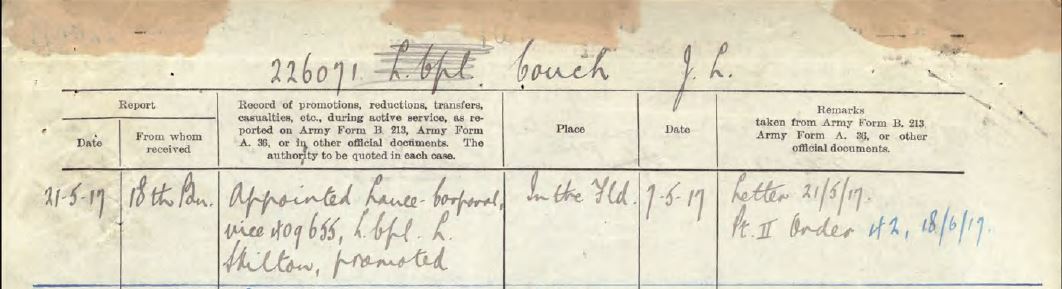 226071. L.Cpl. Couch J. L.
Report
Record of promotions, reductions, transfers,
casualties, etc., during active service, as re-
ported on Army Form B. 213, Army Form
A. 36, or in other official documents. The
authority to be quoted in each case.
Place
Date
Remarks
taken from Army Form B. 213,
Army Form A. 36, or other
official documents.
Date
From whom
received
21-5-17
18th Bn.
Appointed Lance-Corporal,
vice 409655, L.Cpl. L.
Skilton, promoted
In the Fld.
7-5-17
Letter 21/5/17.
Pt. II Order 42, 18/6/17.